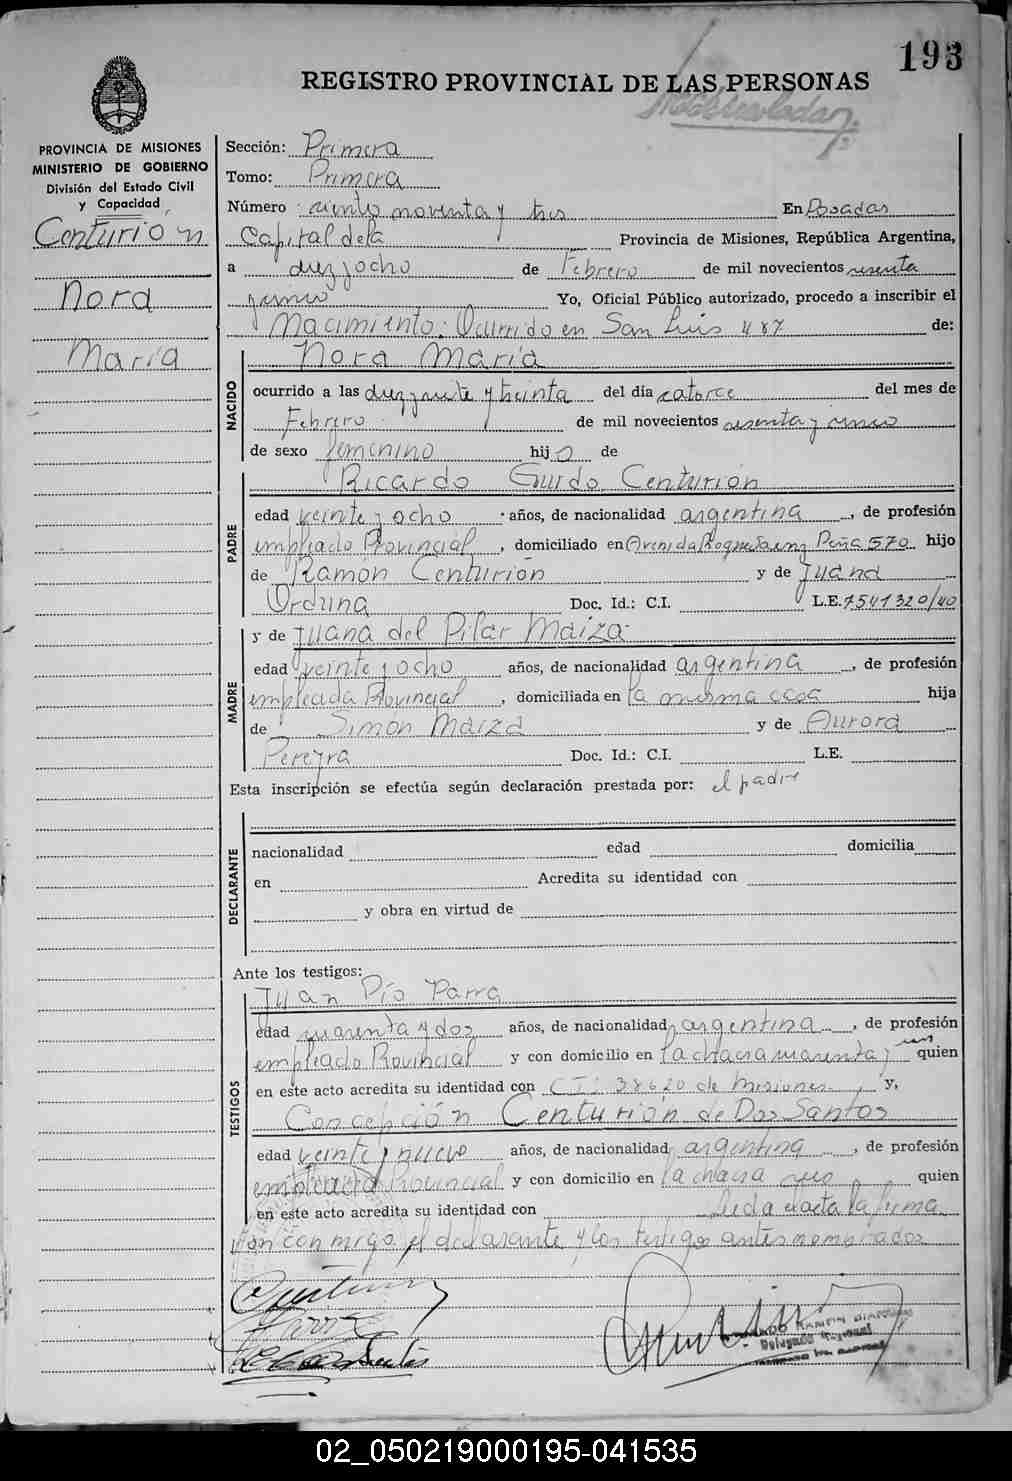 193
REGISTRO PROVINCIAL DE LAS PERSONAS
PROVINCIA DE MISIONES
MINISTERIO DE GOBIERNO
División del Estado Civil
y Capacidad
Centurión
Nora
María
Sección: Primera
Tomo: Primera
Número ciento noventa y tres En Posadas
Capital de la Provincia de Misiones, República Argentina,
a diez y ocho de Febrero de mil novecientos sesenta
y cinco Yo, Oficial Público autorizado, procedo a inscribir el
Nacimiento: Ocurrido en San Luis 487 de:
NACIDO
Nora María
ocurrido a las diez y siete y treinta del día catorce del mes de
Febrero de mil novecientos sesenta y cinco
de sexo femenino hijo de
PADRE
Ricardo Guido Centurión
edad veinte y ocho años, de nacionalidad argentina, de profesión
empleado Provincial, domiciliado en Avenida Roque Saenz Peña 570 hijo
de Ramón Centurión y de Juana
Orduna Doc. Id.: C.I. L.E. 7541320/40
MADRE
y de Juana del Pilar Maiza
edad veinte y ocho años, de nacionalidad argentina, de profesión
empleada Provincial, domiciliada en la misma casa hija
de Simón Maiza y de Aurora
Pereyra Doc. Id.: C.I. L.E.
Esta inscripción se efectúa según declaración prestada por: el padre
DECLARANTE
nacionalidad edad domicilia
en Acredita su identidad con
y obra en virtud de
Ante los testigos:
TESTIGOS
Juan Pío Parra
edad cuarenta y dos años, de nacionalidad argentina, de profesión
empleado Provincial y con domicilio en la chacra cuarenta y quien
en este acto acredita su identidad con C.I: 38620 de Misiones y,
Concepción Centurión de Dos Santos
edad veinte y nueve años, de nacionalidad argentina, de profesión
empleada Provincial y con domicilio en la chacra quien
en este acto acredita su identidad con Leida el acta la firma
ron conmigo el declarante y los testigos antes nombrados
02_050219000195-041535